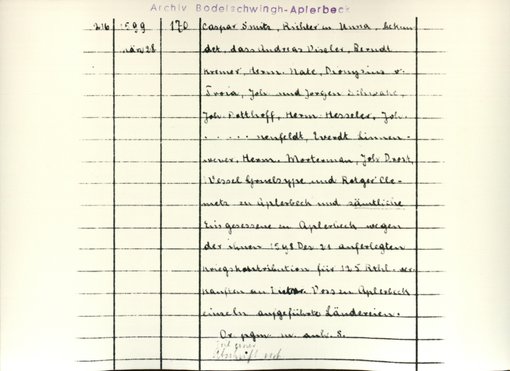 Archiv Bodelschwingh-Aplerbeck
216 1599 170 Caspar Smitz, Richter in Unna, bekun
März 28 det, dass Andreas Vissler, Berndt
Kremer, Herm. Nate, Dionysius v.
Troia, Joh. und Jorgen Schwake,
Joh. Potthoff, Herm. Hesseler, Joh.
. . . . . nenfeldt, Everdt Linnen-
Herm. Morterman, Joh. Drost,
Wessel und Rotger Cle-
metz zu Aplerbeck und sämtliche
Eingesessene zu Aplerbeck wegen
der ihnen 1598 Dez 21 auferlegten
Kriegskontribution für 125 Rthl. ver
kauften an Voss zu Aplerbeck
einzeln aufgeführte Ländereien.
Or. pgm. m. anh. S.